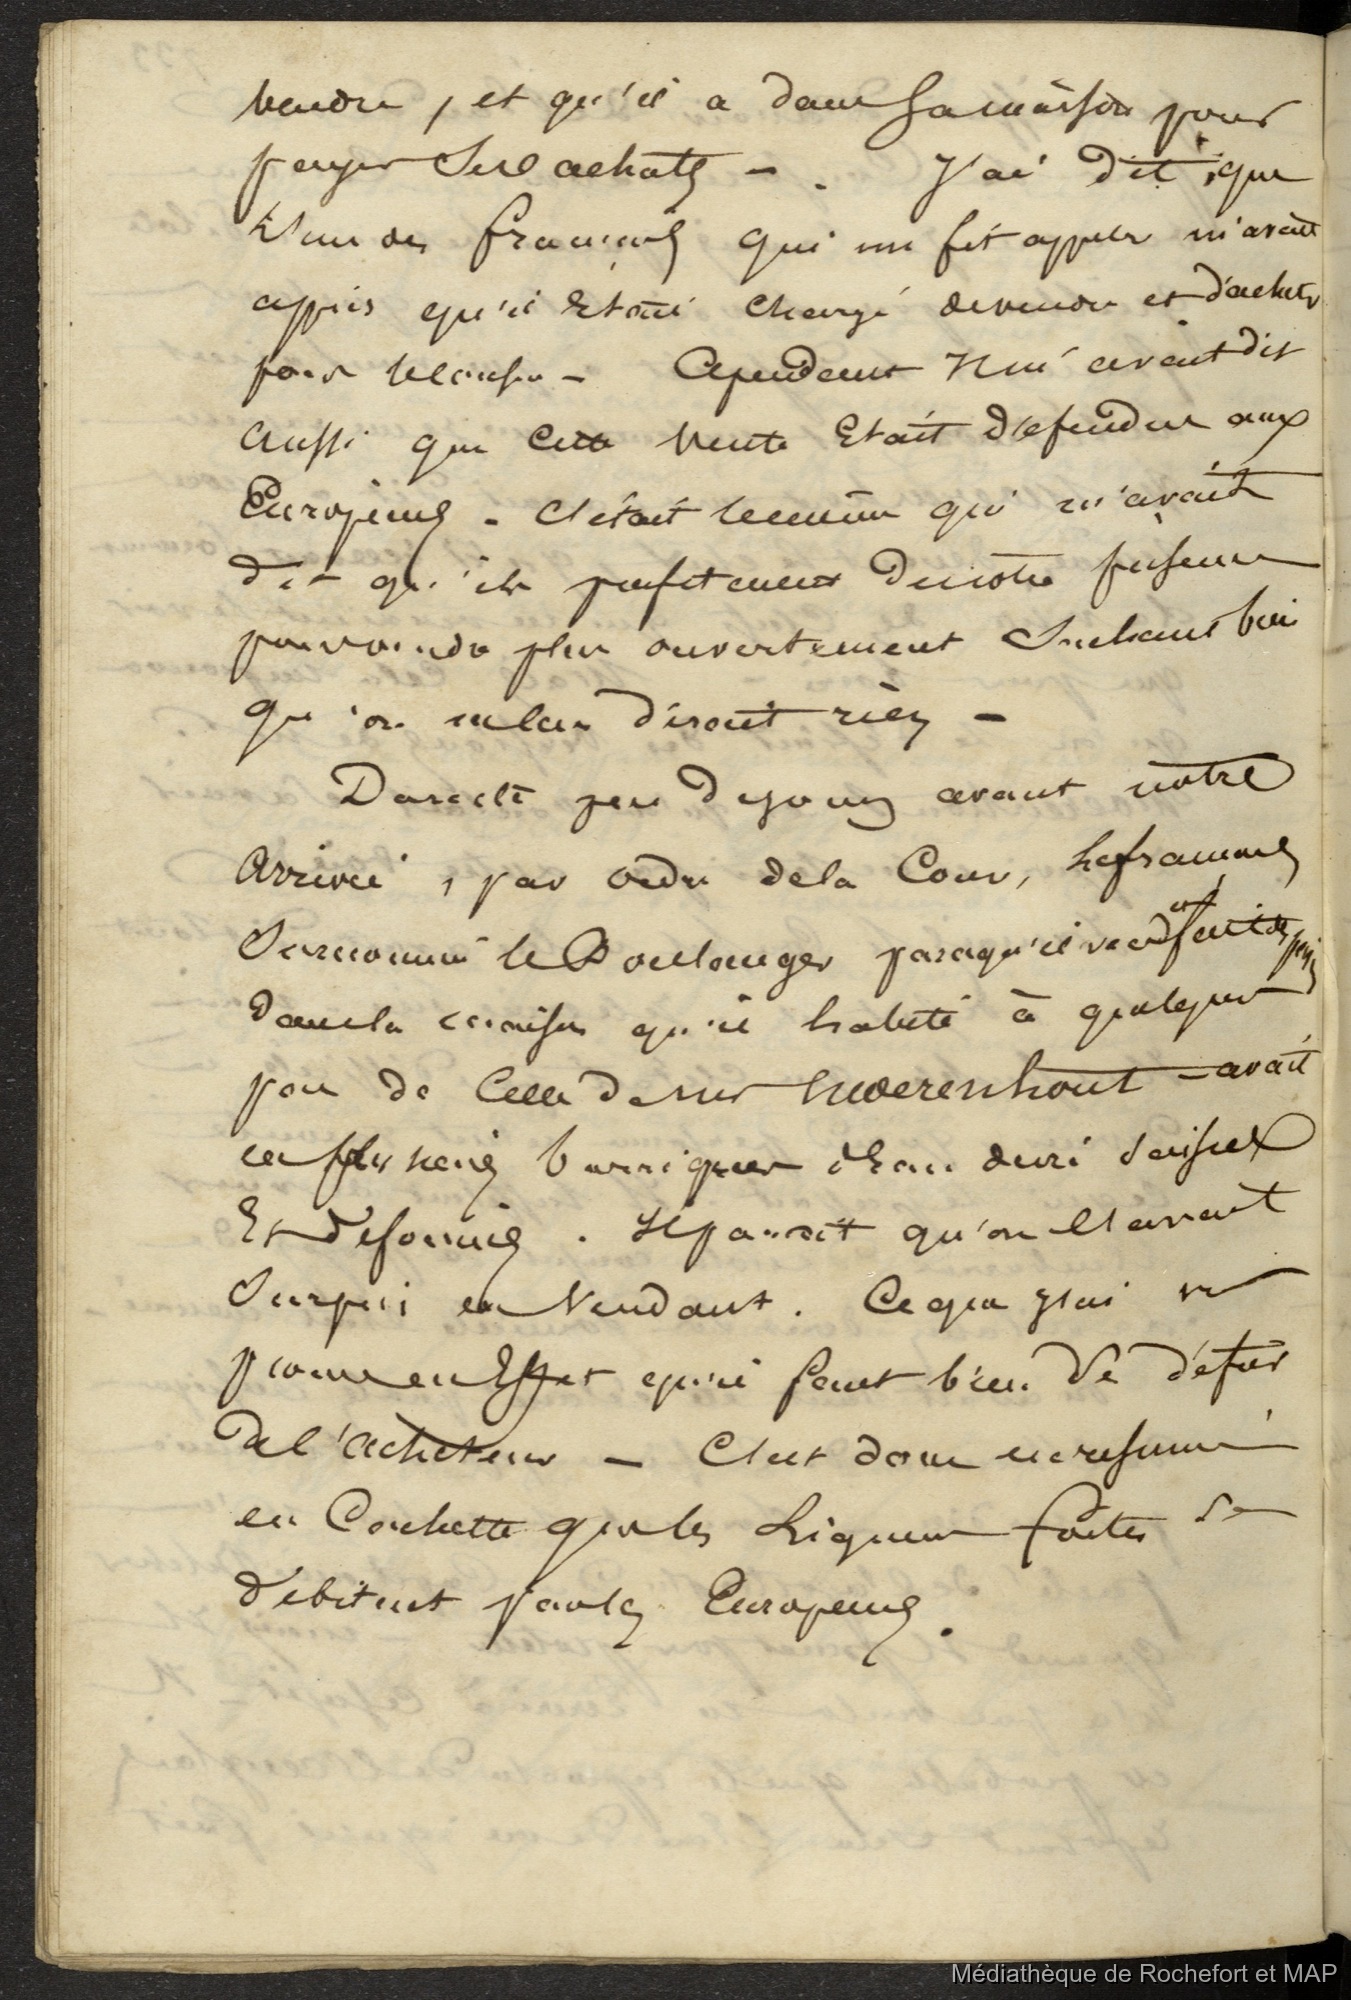 vendre, et qu'il a dans sa maison pour
payer ses achats — . J'ai dit que
l'un des français qui me fit appeler m'avait
appris qu'il était chargé de vendre et d'acheter
pour le consul — Cependant il m'avait dit
aussi que cette vente était défendue aux
Européens . C'était le même qui m'avait
dit qu'ils profitaient de notre présence
pour vendre plus ouvertement sachant bien
qu'on ne leur disait rien —
Dans le peu de jours avant notre
arrivée, par ordre de la Cour, les français
surnommé le Boulanger parcequ'il vend et fait du pain
dans la maison qu'il habite à quelques
pas de celle de Mr Moerenhout — avait
eu plusieurs barriques d'eau de vie saisies
Et défoncées . Il paraît qu'on l'avait
surpris en vendant . Ce que j'ai vu
prouve en effet qu'il faut bien se défier
de l'acheteur — C'est donc en resumé
en Cachette que les Liqueurs fortes se
débitent par les Européens .
Médiathèque de Rochefort et MAP